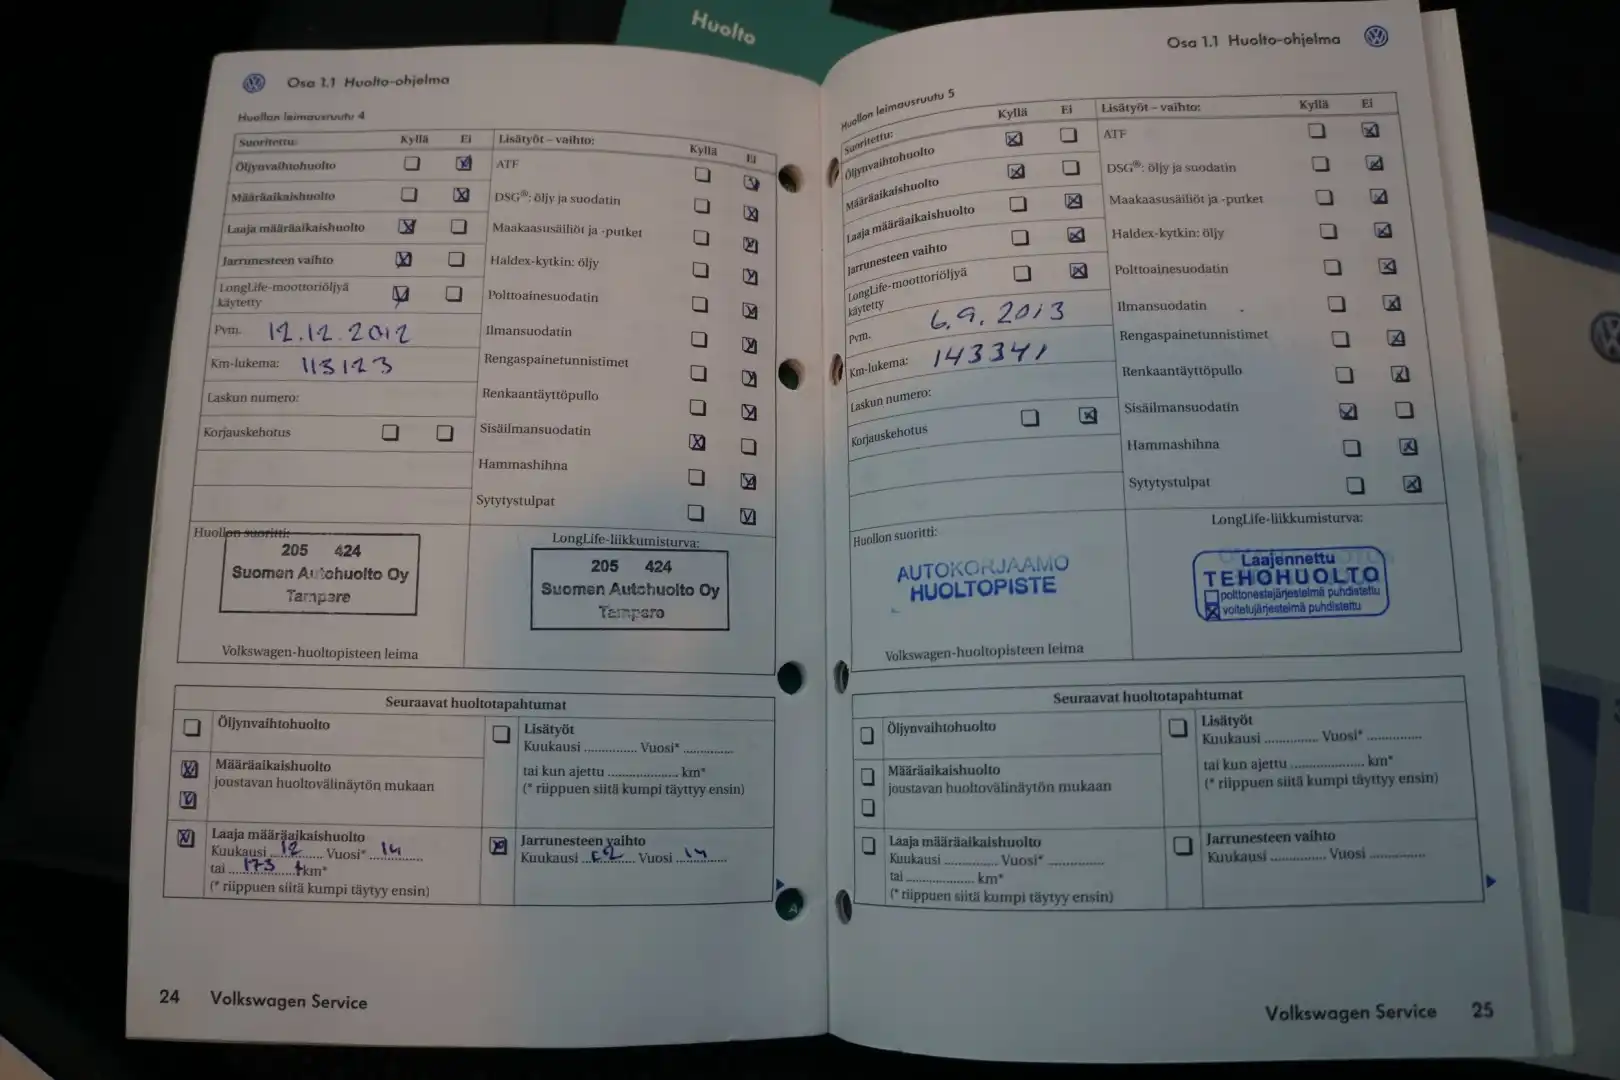 Huolto
Osa 1.1 Huolto-ohjelma
Huollon leimausruutu 4
Suoritettu: Kyllä Ei
Öljynvaihtohuolto
Määräaikaishuolto
Laaja määräaikaishuolto
Jarrunesteen vaihto
LongLife-moottoriöljyä
käytetty
Pvm. 12.12.2012
Km-lukema: 113123
Laskun numero:
Korjauskehotus
Lisätyöt – vaihto: Kyllä Ei
ATF
DSG®: öljy ja suodatin
Maakaasusäiliöt ja -putket
Haldex-kytkin: öljy
Polttoainesuodatin
Ilmansuodatin
Rengaspainetunnistimet
Renkaantäyttöpullo
Sisäilmansuodatin
Hammashihna
Sytytystulpat
Huollon suoritti:
205 424
Suomen Autohuolto Oy
Tampere
Volkswagen-huoltopisteen leima
LongLife-liikkumisturva:
205 424
Suomen Autohuolto Oy
Tampere
Seuraavat huoltotapahtumat
Öljynvaihtohuolto
Määräaikaishuolto
joustavan huoltovälinäytön mukaan
Laaja määräaikaishuolto
Kuukausi 12 Vuosi* 14
tai 173 tkm*
(* riippuen siitä kumpi täytyy ensin)
Lisätyöt
Kuukasi .............. Vuosi* .............
tai kun ajettu .................... km*
(* riippuen siitä kumpi täyttyy ensin)
Jarrunesteen vaihto
Kuukausi 12 Vuosi 14
24 Volkswagen Service
Osa 1.1 Huolto-ohjelma
Huollon leimausruutu 5
Suoritettu: Kyllä Ei
Öljynvaihtohuolto
Määräaikaishuolto
Laaja määräaikaishuolto
Jarrunesteen vaihto
LongLife-moottoriöljyä
käytetty
Pvm. 6.9.2013
Km-lukema: 143341
Laskun numero:
Korjauskehotus
Lisätyöt – vaihto: Kyllä Ei
ATF
DSG®: öljy ja suodatin
Maakaasusäiliöt ja -putket
Haldex-kytkin: öljy
Polttoainesuodatin
Ilmansuodatin
Rengaspainetunnistimet
Renkaantäyttöpullo
Sisäilmansuodatin
Hammashihna
Sytytystulpat
Huollon suoritti:
AUTOKORJAAMO
HUOLTOPISTE
Volkswagen-huoltopisteen leima
LongLife-liikkumisturva:
Laajennettu
TEHOHUOLTO
polttonestejärjestelmä puhdistettu
voitelujärjestelmä puhdistettu
Seuraavat huoltotapahtumat
Öljynvaihtohuolto
Määräaikaishuolto
joustavan huoltovälinäytön mukaan
Laaja määräaikaishuolto
Kuukausi .............. Vuosi* ..............
tai .................... km*
(* riippuen siitä kumpi täytyy ensin)
Lisätyöt
Kuukausi .............. Vuosi* ..............
tai kun ajettu .................... km*
(* riippuen siitä kumpi täyttyy ensin)
Jarrunesteen vaihto
Kuukausi .............. Vuosi ..............
Volkswagen Service 25